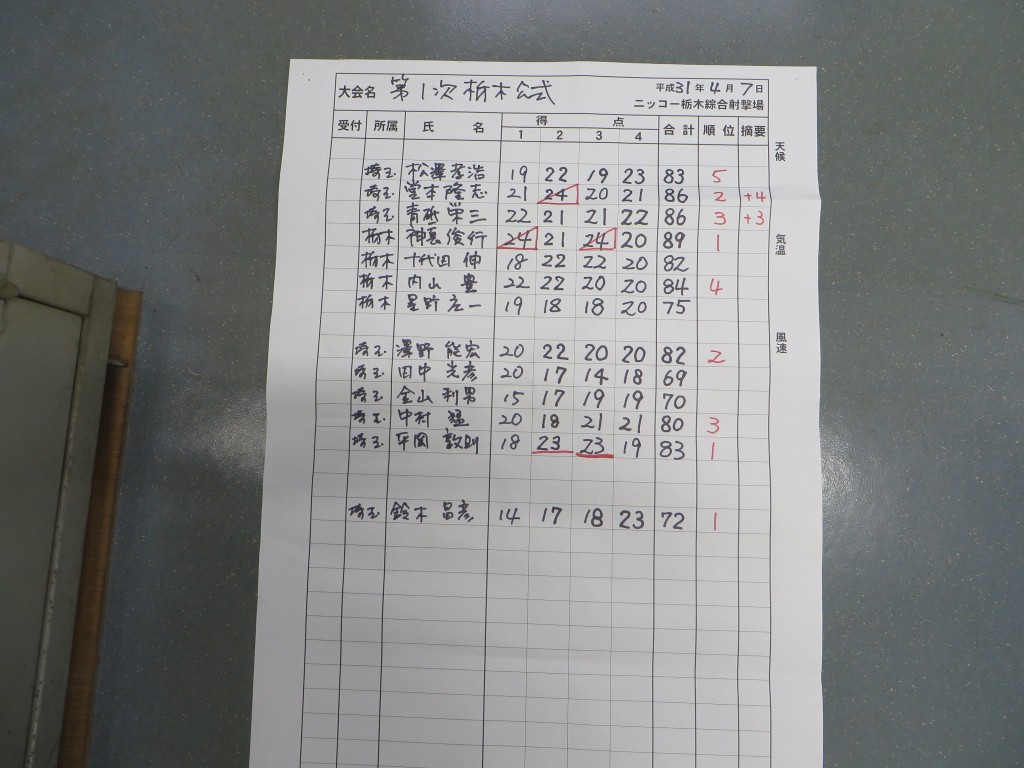 大会名 第1次栃木公式 平成31年4月7日
ニッコー栃木綜合射撃場
受付 所属 氏名 得点 合計 順位 摘要
1 2 3 4
天候
埼玉 松澤孝浩 19 22 19 23 83 5
埼玉 堂本隆志 21 24 20 21 86 2 +4
埼玉 青砥栄三 22 21 21 22 86 3 +3
気温
栃木 神長俊行 24 21 24 20 89 1
栃木 十代田伸 18 22 22 20 82
栃木 内山豊 22 22 20 20 84 4
栃木 星野広一 19 18 18 20 75
風速
埼玉 澤野能宏 20 22 20 20 82 2
埼玉 田中光彦 20 17 14 18 69
埼玉 金山利男 15 17 19 19 70
埼玉 中村猛 20 18 21 21 80 3
埼玉 平岡敦則 18 23 23 19 83 1
埼玉 鈴木昌彦 14 17 18 23 72 1